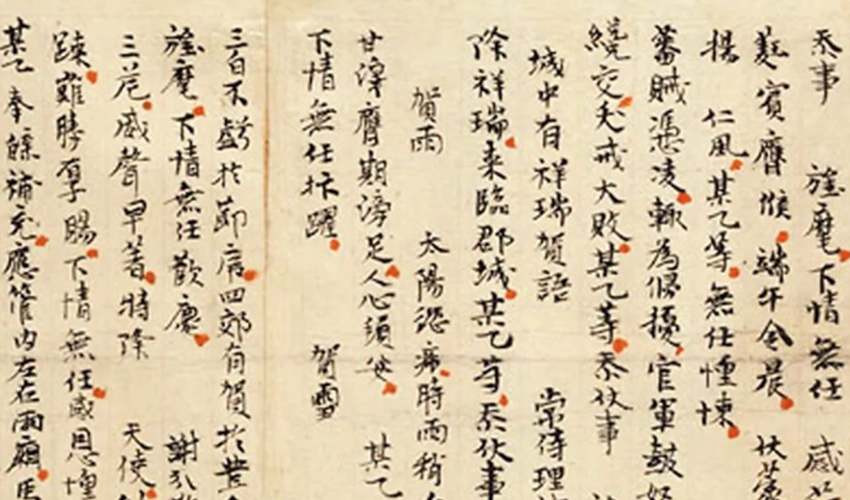 忝事 旌麾下情無任 感
蕤賓膺候端午令晨 伏蒙
揚 仁風某乙等無任惶悚
蕃賊憑凌輒為侵擾官軍鼓
纔交犬戎大敗某乙等忝伏事
城中有祥瑞賀語 常侍理
降祥瑞來臨郡城某乙等忝伏事
賀雨 太陽愆 時雨稍
甘澤膺期滂足人心頓安 某乙
下情無任抃躍 賀雪
三白不虧於節 四郊有賀於豊
旌麾下情無任歡慶 謝
三 威聲早著特降 天使
踈難勝厚賜下情無任感恩惶
某乙奉 補充應管內左右兩廂馬